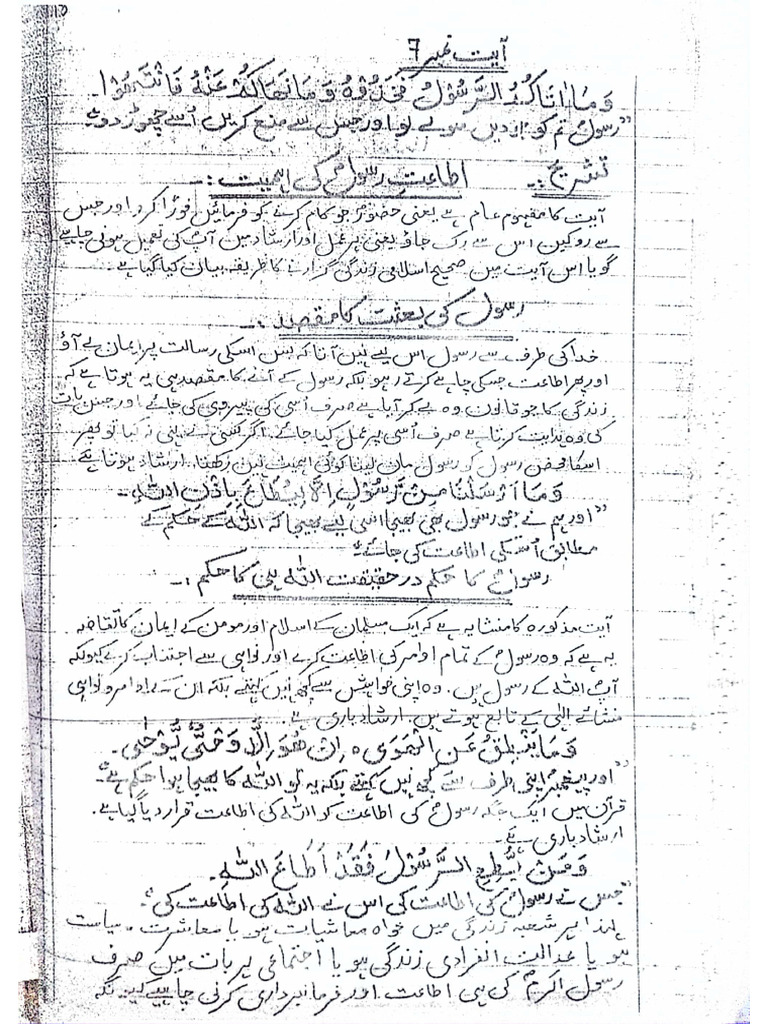 آیت نمبر 7
وَمَا اٰتَاکُمُ الرَّسُوْلُ فَخُذُوْهُ وَمَا نَھَاکُمْ عَنْهُ فَانْتَھُوْا
"رسولؐ تم کو جو دیں سو لے لو اور جس سے منع کریں اُسے چھوڑ دو"۔
تشریح:۔ اطاعتِ رسولؐ کی اہمیت:۔
آیت کا مفہوم عام ہے یعنی حضورؐ جو کام کرنے کو فرمائیں فوراً کرو اور جس
سے روکیں اس سے رک جاؤ یعنی ہر عمل اور ارشاد میں آپؐ کی تعمیل ہونی چاہیے
گویا اس آیت میں صحیح اسلامی زندگی گزارنے کا طریقہ بیان کیا گیا ہے۔
رسول کی بعثت کا مقصد:۔
خدا کی طرف سے رسول اس لیے نہیں آتا کہ بس اسکی رسالت پر ایمان لے آؤ
اور پھر اطاعت جسکی چاہے کرتے رہو بلکہ رسول کے آنے کا مقصد ہی یہ ہوتا ہے کہ
زندگی کا جو قانون وہ لے کر آیا ہے صرف اُسی کی پیروی کی جائے اور جس بات
کی وہ ہدایت کرتا ہے صرف اُسی پر عمل کیا جائے۔ اگر کسی نے یہی نہ کیا تو پھر
اسکا محض رسول کو رسول مان لینا کوئی اہمیت نہیں رکھتا۔ ارشاد ہوتا ہے
وَمَا اَرْسَلْنَا مِنْ رَّسُوْلٍ اِلَّا لِیُطَاعَ بِاِذْنِ اللہِ۔
"اور ہم نے جو رسول بھی بھیجا اسی لیے بھیجا کہ اللہ کے حکم کے
مطابق اُسکی اطاعت کی جائے"۔
رسولؐ کا حکم درحقیقت اللہ ہی کا حکم:۔
آیت مذکورہ کا منشا یہ ہے کہ ایک مسلمان کے اسلام اور مومن کے ایمان کا تقاضہ
یہ ہے کہ وہ رسولؐ کے تمام اوامر کی اطاعت کرے اور نواہی سے اجتناب کرے کیونکہ
آپؐ اللہ کے رسول ہیں۔ وہ اپنی خواہش سے کچھ نہیں کہتے بلکہ ان کے اوامر و نواہی
منشائے الٰہی کے تابع ہوتے ہیں۔ ارشاد باری ہے
وَمَا یَنْطِقُ عَنِ الْھَوٰی ہ اِنْ ھُوَ اِلَّا وَحْیٌ یُّوْحٰی۔
"اور پیغمبر اپنی طرف سے کچھ نہیں کہتے بلکہ یہ تو اللہ کا بھیجا ہوا حکم ہے"۔
قرآن میں ایک جگہ رسولؐ کی اطاعت کو اللہ کی اطاعت قرار دیا گیا ہے۔
ارشاد باری ہے۔
وَمَنْ یُّطِعِ الرَّسُوْلَ فَقَدْ اَطَاعَ اللہَ۔
"جس نے رسولؐ کی اطاعت کی اس نے اللہ کی اطاعت کی"۔
لہذا ہر شعبہ زندگی میں خواہ معاشیات ہو یا معاشرت، سیاست
ہو یا عدالت انفرادی زندگی ہو یا اجتماعی ہر بات میں صرف
رسول اکرمؐ کی ہی اطاعت اور فرمانبرداری کرنی چاہیے کیونکہ